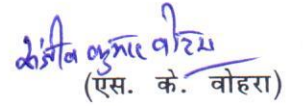 संजीव कुमार वोहरा
(एस. के. वोहरा)